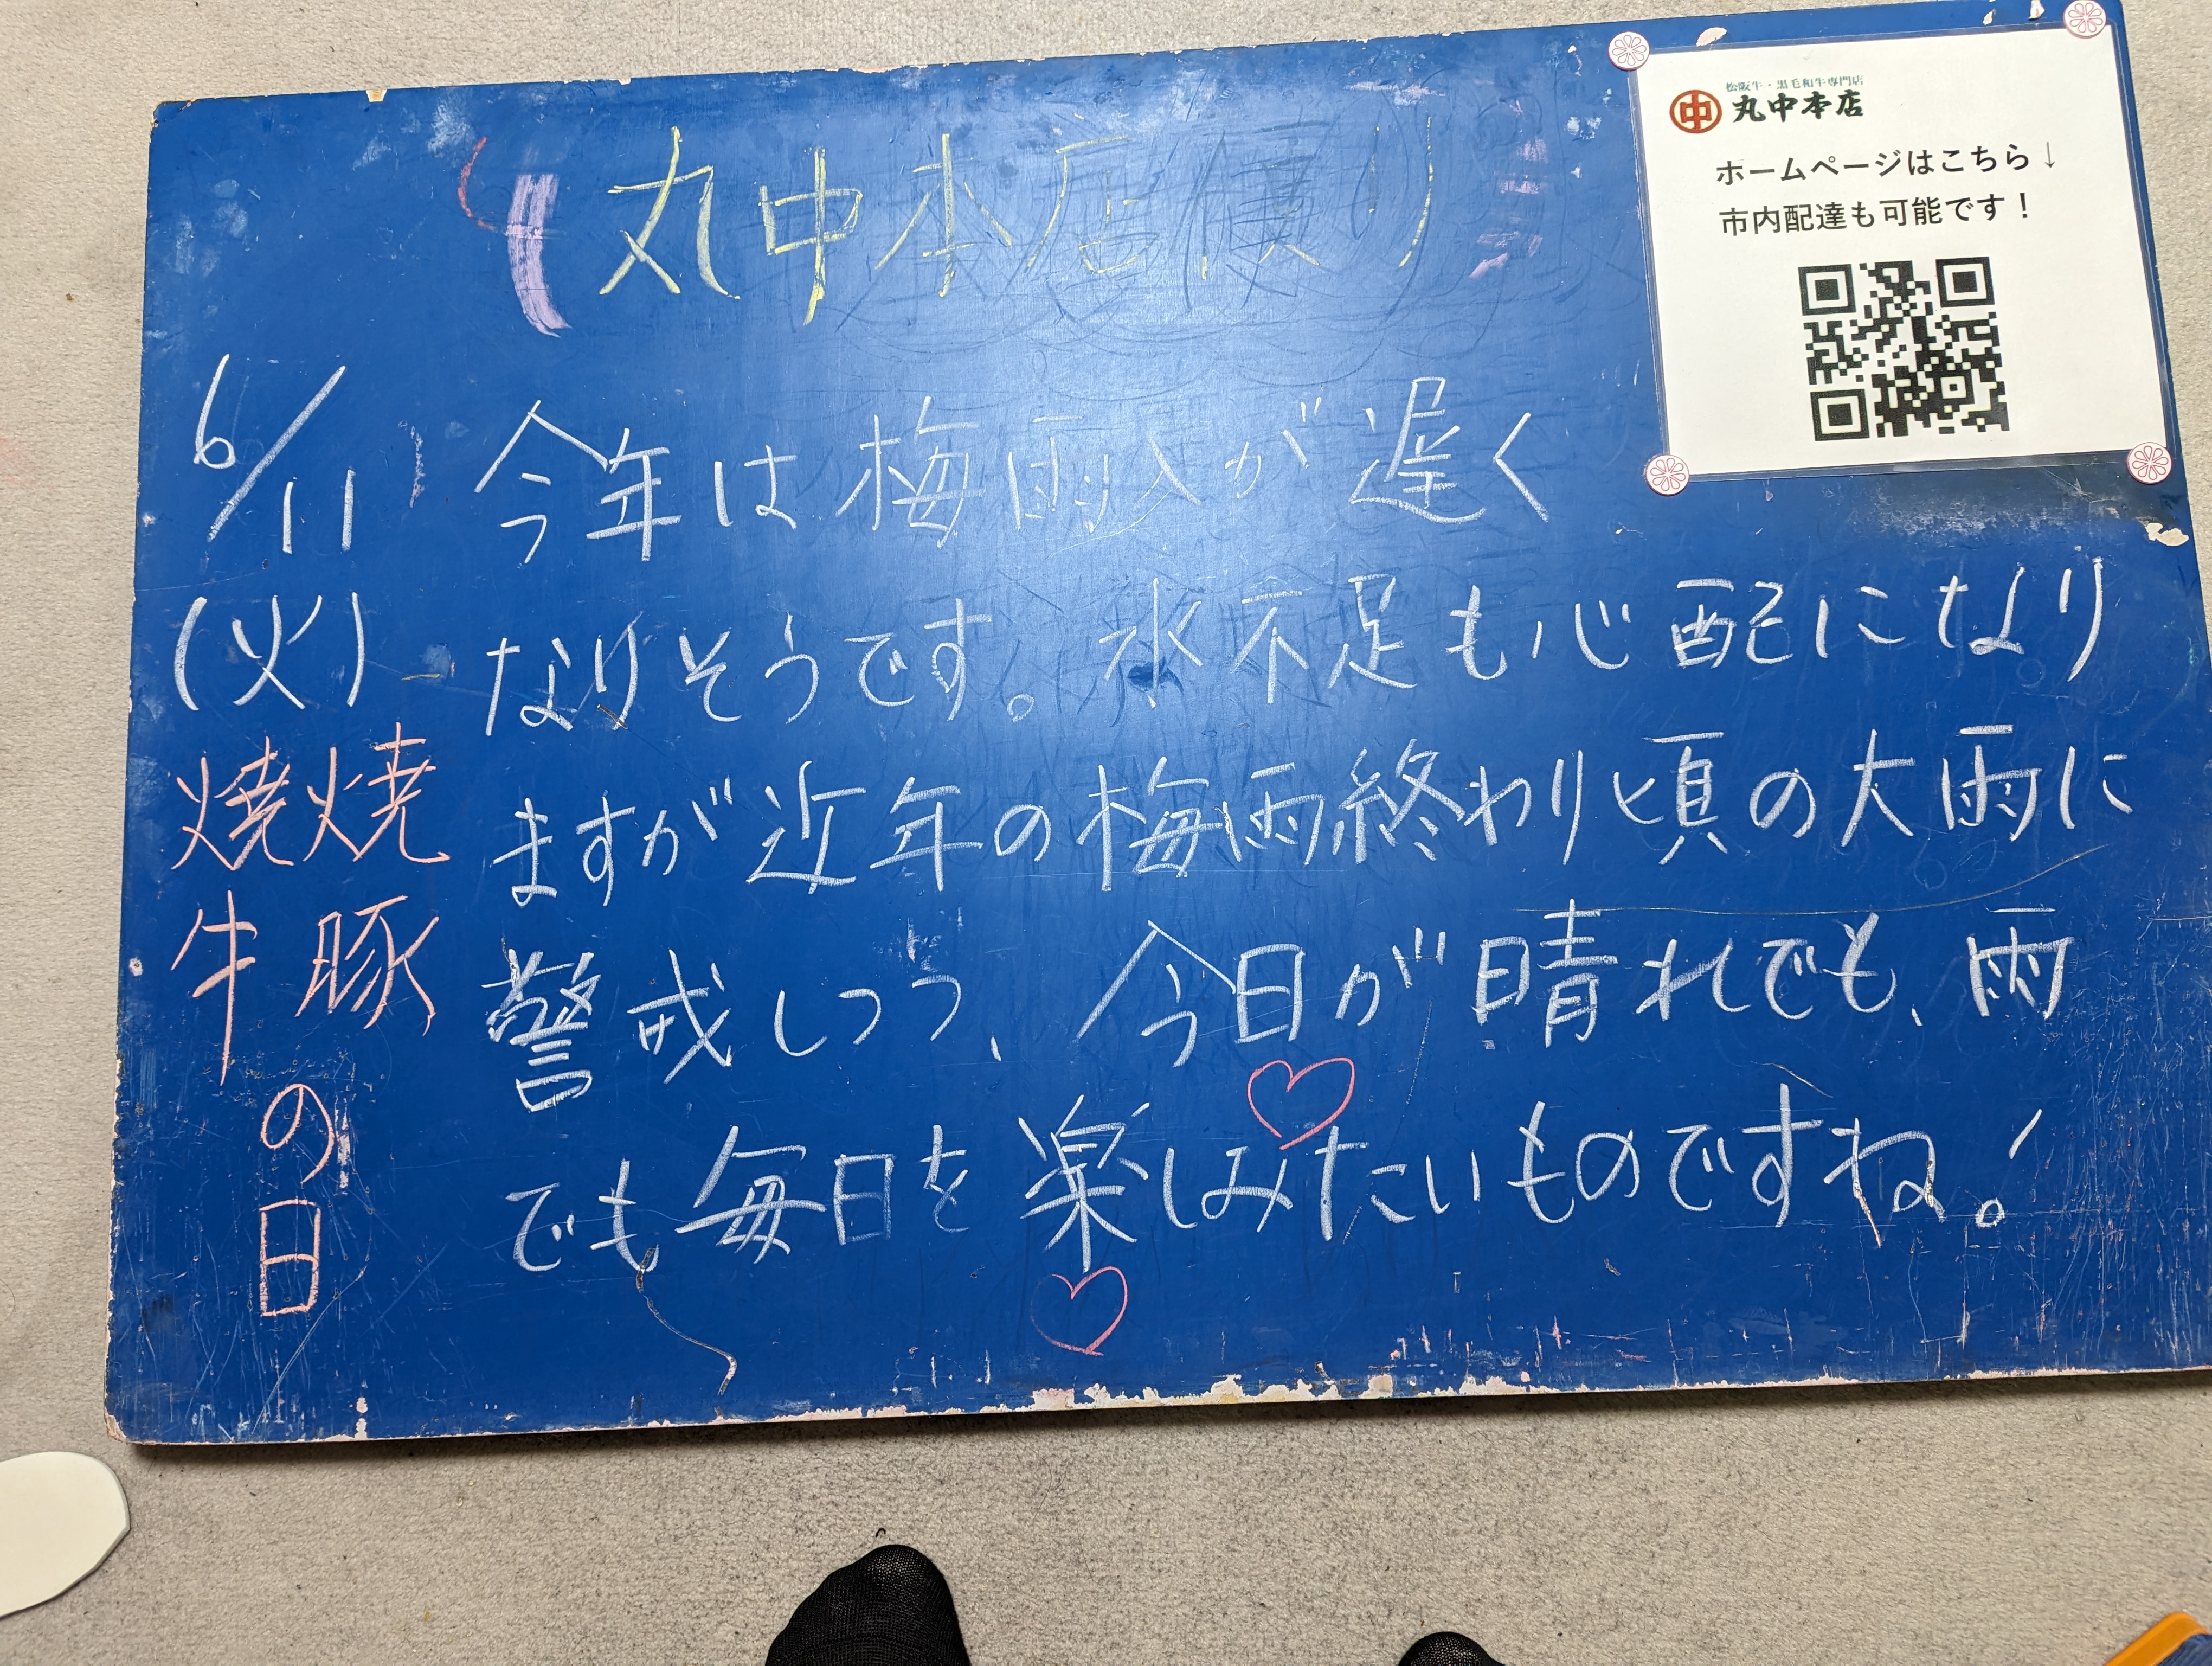 丸中本店便り
松阪牛・黒毛和牛専門店
丸中本店
ホームページはこちら↓
市内配達も可能です!
6/11
(火)
焼豚
焼牛
の日
今年は梅雨入が遅く
なりそうです。水不足も心配になり
ますが近年の梅雨終わり頃の大雨に
警戒しつつ、今日が晴れでも、雨
でも毎日を楽しみたいものですね!